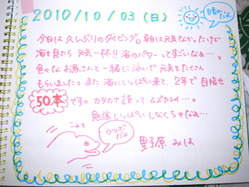 2010/10/03 (日)
今日は久しぶりのダイビング。朝は元気なかったけど
海を見たら元気一杯!! 海のパワーってすごいなぁ…。
色々なお魚さんと一緒に泳いで元気をたくさん
もらいました。また海にいっぱい来て、2年で目指せ
50本です。カタカナ語ってムズカシイ…。
勉強しなくちゃなぁ…。
ウツボだよ
野原 みほ